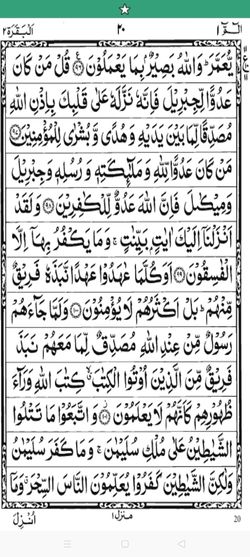 البقرة ٢ ٢٠ الٓمّٓ ١
يُّعَمَّرَ ؕ وَاللّٰهُ بَصِيْرٌۢ بِمَا يَعْمَلُوْنَ ﴿٩٦﴾ قُلْ مَنْ كَانَ
عَدُوًّا لِّجِبْرِيْلَ فَاِنَّهٗ نَزَّلَهٗ عَلٰى قَلْبِكَ بِاِذْنِ اللّٰهِ
مُصَدِّقًا لِّمَا بَيْنَ يَدَيْهِ وَهُدًى وَّبُشْرٰى لِلْمُؤْمِنِيْنَ ﴿٩٧﴾
مَنْ كَانَ عَدُوًّا لِّلّٰهِ وَمَلٰٓئِكَتِهٖ وَرُسُلِهٖ وَجِبْرِيْلَ
وَمِيْكٰىلَ فَاِنَّ اللّٰهَ عَدُوٌّ لِّلْكٰفِرِيْنَ ﴿٩٨﴾ وَلَقَدْ
اَنْزَلْنَاۤ اِلَيْكَ اٰيٰتٍۭ بَيِّنٰتٍ ۚ وَمَا يَكْفُرُ بِهَاۤ اِلَّا
الْفٰسِقُوْنَ ﴿٩٩﴾ اَوَكُلَّمَا عٰهَدُوْا عَهْدًا نَّبَذَهٗ فَرِيْقٌ
مِّنْهُمْ ؕ بَلْ اَكْثَرُهُمْ لَا يُؤْمِنُوْنَ ﴿١٠٠﴾ وَلَمَّا جَآءَهُمْ
رَسُوْلٌ مِّنْ عِنْدِ اللّٰهِ مُصَدِّقٌ لِّمَا مَعَهُمْ نَبَذَ
فَرِيْقٌ مِّنَ الَّذِيْنَ اُوْتُوا الْكِتٰبَ ۙ كِتٰبَ اللّٰهِ وَرَآءَ
ظُهُوْرِهِمْ كَاَنَّهُمْ لَا يَعْلَمُوْنَ ﴿١٠١﴾ وَاتَّبَعُوْا مَا تَتْلُوا
الشَّيٰطِيْنُ عَلٰى مُلْكِ سُلَيْمٰنَ ۚ وَمَا كَفَرَ سُلَيْمٰنُ
وَلٰكِنَّ الشَّيٰطِيْنَ كَفَرُوْا يُعَلِّمُوْنَ النَّاسَ السِّحْرَ ۗ وَمَاۤ
اُنْزِلَ منزل ١ 20